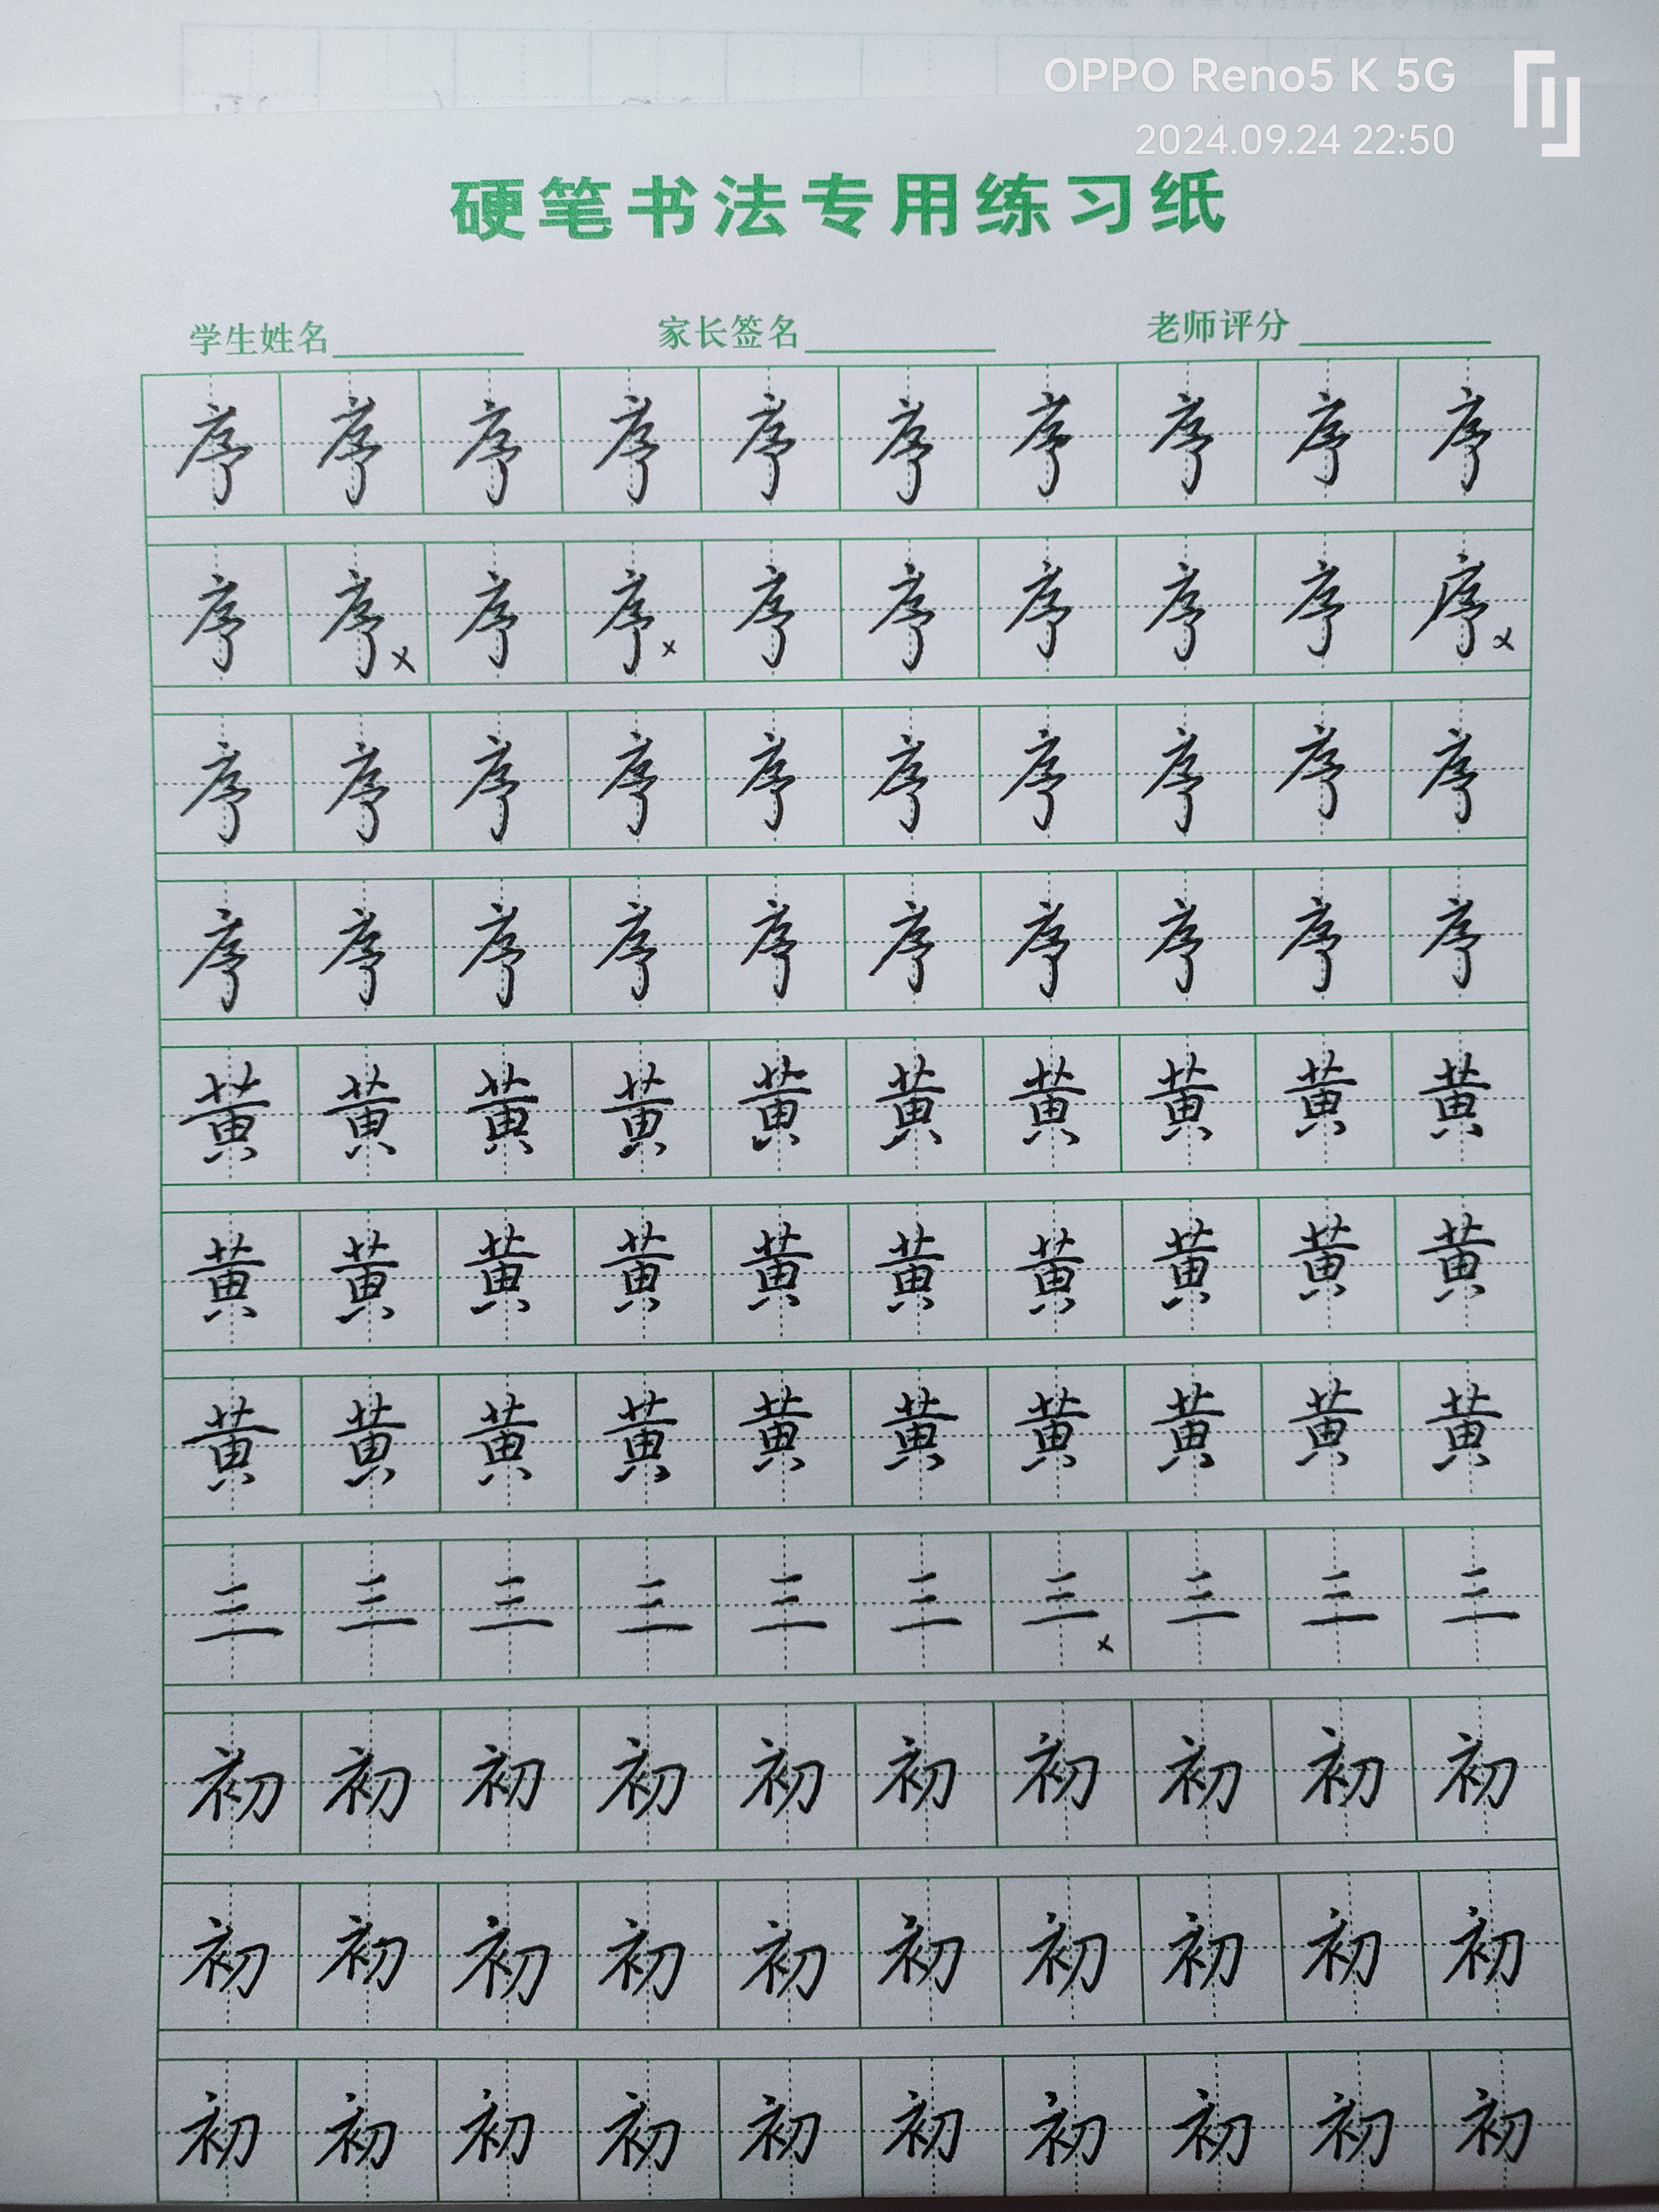 OPPO Reno5 K 5G
2024.09.24 22:50
硬笔书法专用练习纸
学生姓名 家长签名 老师评分
序 序 序 序 序 序 序 序 序 序
序 序 x 序 序 x 序 序 序 序 序 序 x
序 序 序 序 序 序 序 序 序 序
序 序 序 序 序 序 序 序 序 序
黄 黄 黄 黄 黄 黄 黄 黄 黄 黄
黄 黄 黄 黄 黄 黄 黄 黄 黄 黄
黄 黄 黄 黄 黄 黄 黄 黄 黄 黄
三 三 三 三 三 三 三 x 三 三 三
初 初 初 初 初 初 初 初 初 初
初 初 初 初 初 初 初 初 初 初
初 初 初 初 初 初 初 初 初 初